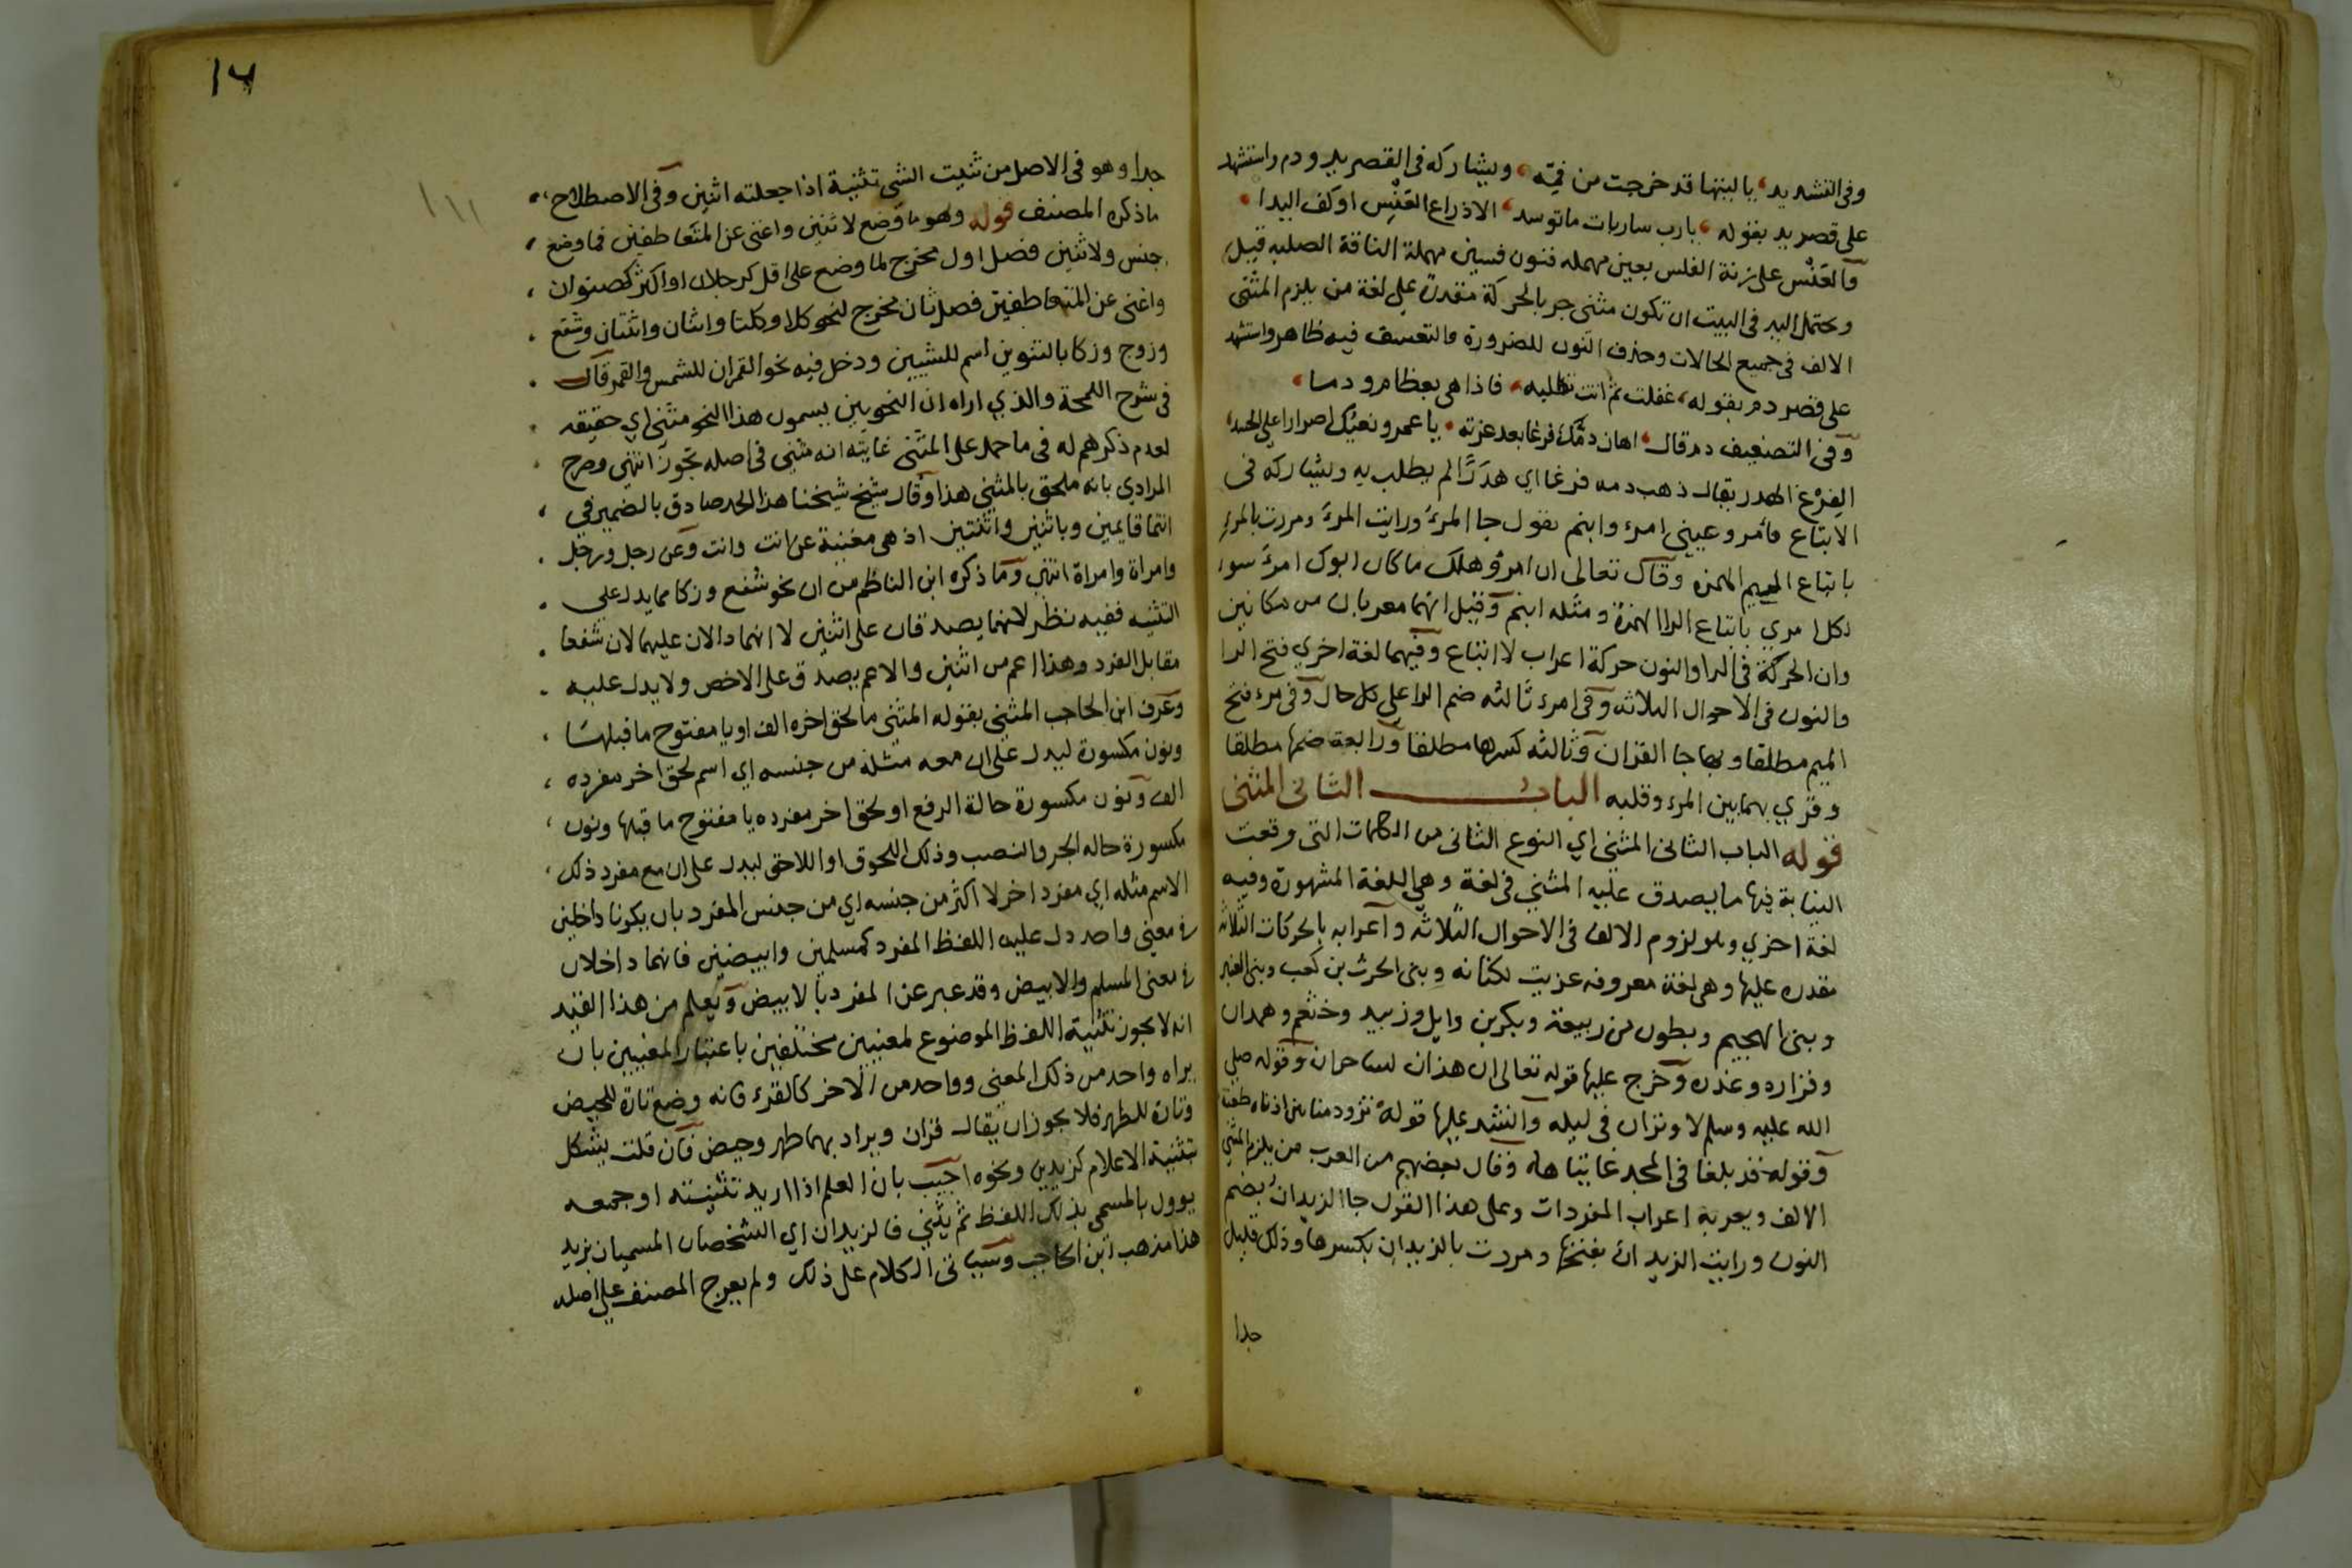 وفى التشديد يا ليتها قد خرجت من فمّه ويشاركه فى القصر يد ودم واستشهد
على قصر يد بقوله يا رب ساريات ما توسد الا ذراع العَنْس او كف اليدا
والعَنْس على زنة الفلس بعين مهمله فنون فسين مهملة الناقة الصلبه قيل
ويحتمل اليد فى البيت ان تكون مثنى جر بالحركة مقدرة على لغة من يلزم المثنى
الالف فى جميع الحالات وحذف النون للضرورة والتعسف فيه ظاهر واستشهد
على قصر دم بقوله غفلت ثم انت تطلبه فاذا هى بعظام ودما
وفى التضعيف دم قال اهان دمّك فرغا بعد عزته يا عمرو بغيك اصرارا على الحسد
الفِرْغ الهدر يقال ذهب دمه فرغا اي هَدَرًا لم يطلب به ويشاركه فى
الاتباع فأمر وعينى امرء وابنم تقول جا المرءُ ورايت المرءَ ومررت بالمرءِ
باتباع الميم الهمزه وقال تعالى ان امرؤ هلك ما كان ابوك امرءَ سوء
لكل امرئ باتباع الرا الهمزة ومثله ابنم وقيل انهما معربان من مكانين
وان الحركة فى الرا والنون حركة اعراب لا اتباع وفيهما لغة اخري فتح الرا
والنون فى الاحوال الثلاثه وفى امرء ثالثه ضم الرا على كل حال وفى مرء فتح
الميم مطلقا وبها جا القران وثالثه كسرها مطلقا ورابعة ضمها مطلقا
وقري بهما بين المرء وقلبه الباب الثانى المثنى
قوله الباب الثانى المثنى اي النوع الثانى من الكلمات التى وقعت
النيابة فيها ما يصدق عليه المثنى فى لغة وهى اللغة المشهورة وفيه
لغة اخري وهو لزوم الالف فى الاحوال الثلاثه واعرابه بالحركات الثلاثه
مقدره عليها وهى لغة معروفه عزيت لكنانه وبنى الحرث بن كعب وبنى العنبر
وبنى الهجيم وبطون من ربيعة وبكر بن وايل وزبيد وخثعم وهمدان
وفزاره وعذره وخرج عليها قوله تعالى ان هذان لساحران وقوله صلى
الله عليه وسلم لا وتران فى ليله وانشد عليها قوله تزود منا بين اذناه طعنة
وقوله قد بلغا فى المجد غايتاها وقال بعضهم من العرب من يلزم المثنى
الالف ويعربه اعراب المفردات وعلى هذا القول جا الزيدانُ بضم
النون ورايت الزيدانَ بفتحها ومررت بالزيدانِ بكسرها وذلك قليل
جدا
١٤
جدا وهو فى الاصل من ثنيت الشى تثنية اذا جعلته اثنين وفى الاصطلاح
ما ذكره المصنف قوله وهو ما وضع لاثنين واغنى عن المتعاطفين فما وضع
جنس ولاثنين فصل اول مخرج لما وضع على اقل كرجلان او اكثر كصنوان
واغنى عن المتعاطفين فصل ثان مخرج لنحو كلا وكلتا واثنان واثنتان وشفع
وزوج وزكا بالتنوين اسم للشيين ودخل فيه نحو القمران للشمس والقمر قال
فى شرح اللمحة والذي اراه ان النحويين يسمون هذا النحو مثنى اي حقيقه
لعدم ذكرهم له فى ما حمل على المثنى غايته انه مثنى فى اصله تجوز انتهى وصرح
المرادي بانه ملحق بالمثنى هذا وقال شيخ شيخنا هذا الحد صادق بالضمير في
انتما قايمين وباثنين واثنتين اذ هى مغنية عن انت وانت وعن رجل ورجل
وامراة وامراة انتهى وما ذكره ابن الناظم من ان نحو شفع وزكا مما يدل على
التثنيه ففيه نظر لانهما يصدقان على اثنين لا انهما دالان عليهما لان شفعا
مقابل الفرد وهذا اعم من اثنين والاعم يصدق على الاخص ولا يدل عليه
وعرف ابن الحاجب المثنى بقوله المثنى ما لحق اخره الف او يا مفتوح ما قبلها
ونون مكسورة ليدل على ان معه مثله من جنسه اي اسم لحق اخر مفرده
الف ونون مكسورة حالة الرفع او لحق اخر مفرده يا مفتوح ما قبلها ونون
مكسورة حاله الجر والنصب وذلك اللحوق او اللاحق ليدل على ان مع مفرد ذلك
الاسم مثله اي مفرد اخر لا اكثر من جنسه اي من جنس المفرد بان يكونا داخلين
فى معنى واحد دل عليه اللفظ المفرد كمسلمين وابيضين فانهما داخلان
فى معنى المسلم والابيض وقد عبر عن المفرد با لابيض ويعلم من هذا القيد
انه لا يجوز تثنية اللفظ الموضوع لمعنيين مختلفين باعتبار المعنيين بان
يراه واحد من ذلك المعنى وواحد من الاخر كالقرء فانه وضع تارة للحيض
وتارة للطهر فلا يجوز ان يقال قران ويراد بهما طهر وحيض فان قلت يشكل
بتثنية الاعلام كزيدين ونحوه اجيب بان العلم اذا اريد تثنيته او جمعه
يوول بالمسمى بذلك اللفظ ثم يثنى فالزيدان اي الشخصان المسميان بزيد
هذا مذهب ابن الحاجب وسياتى الكلام على ذلك ولم يعرج المصنف على اصله